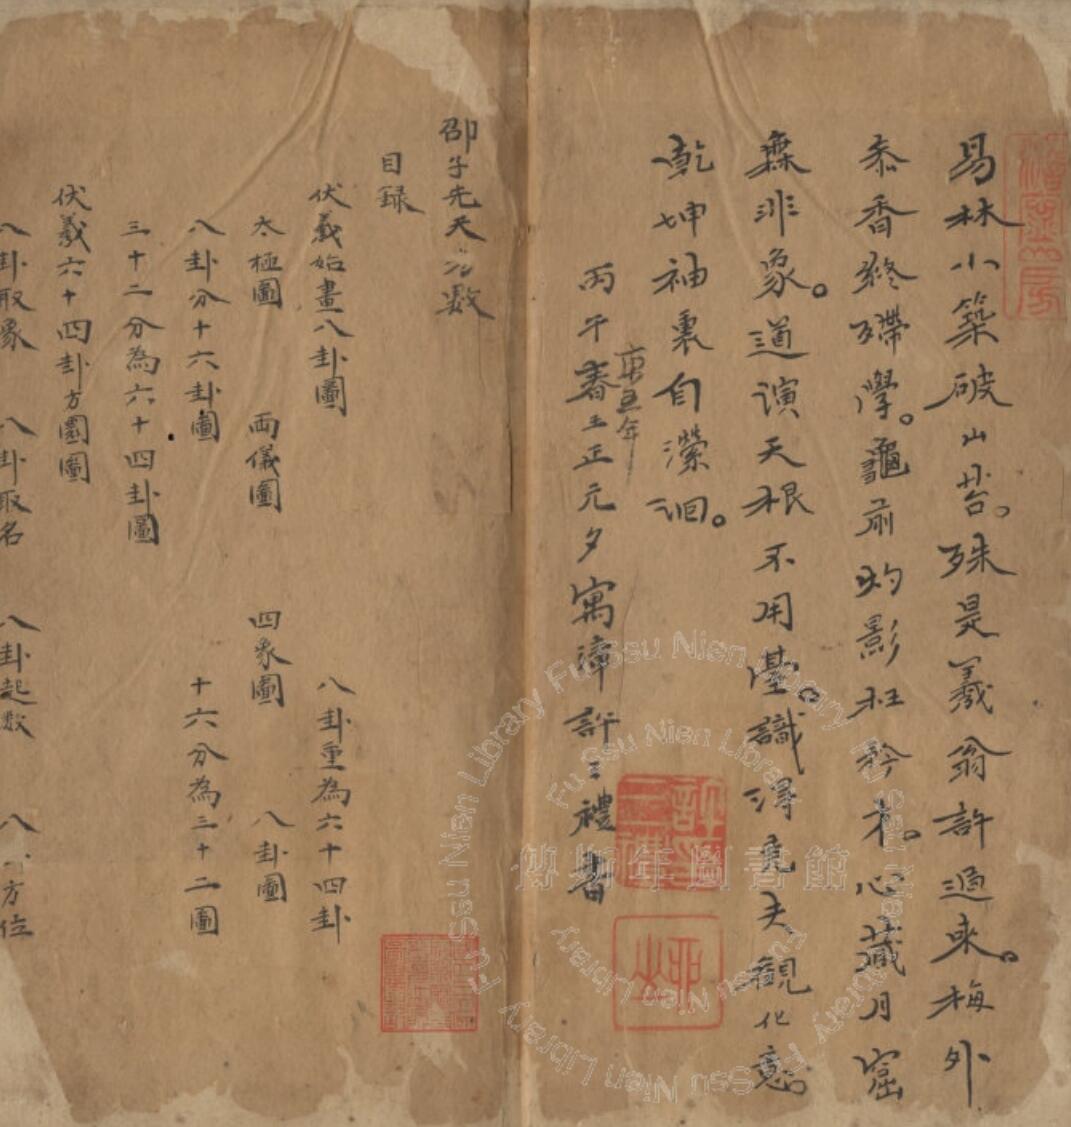 易林小築破山苔。殊是羲翁許過來。梅外
香終殫學。龜前灼影枉矜才。心藏月窟
無非象。道演天根不用臺。識得堯夫觀化意。
乾坤袖裏自瀠洄。
丙午春王正元夕寓漳許三禮書
年
許三禮
邵子先天數
目錄
伏羲始畫八卦圖 八卦重為六十四卦
太極圖 兩儀圖 四象圖 八卦圖
八卦分十六卦圖 十六分為三十二圖
三十二分為六十四卦圖
伏羲六十四卦方圓圖
八卦取象 八卦取名 八卦起數 八方位
傅斯年圖書館
Fu Ssu Nien Library